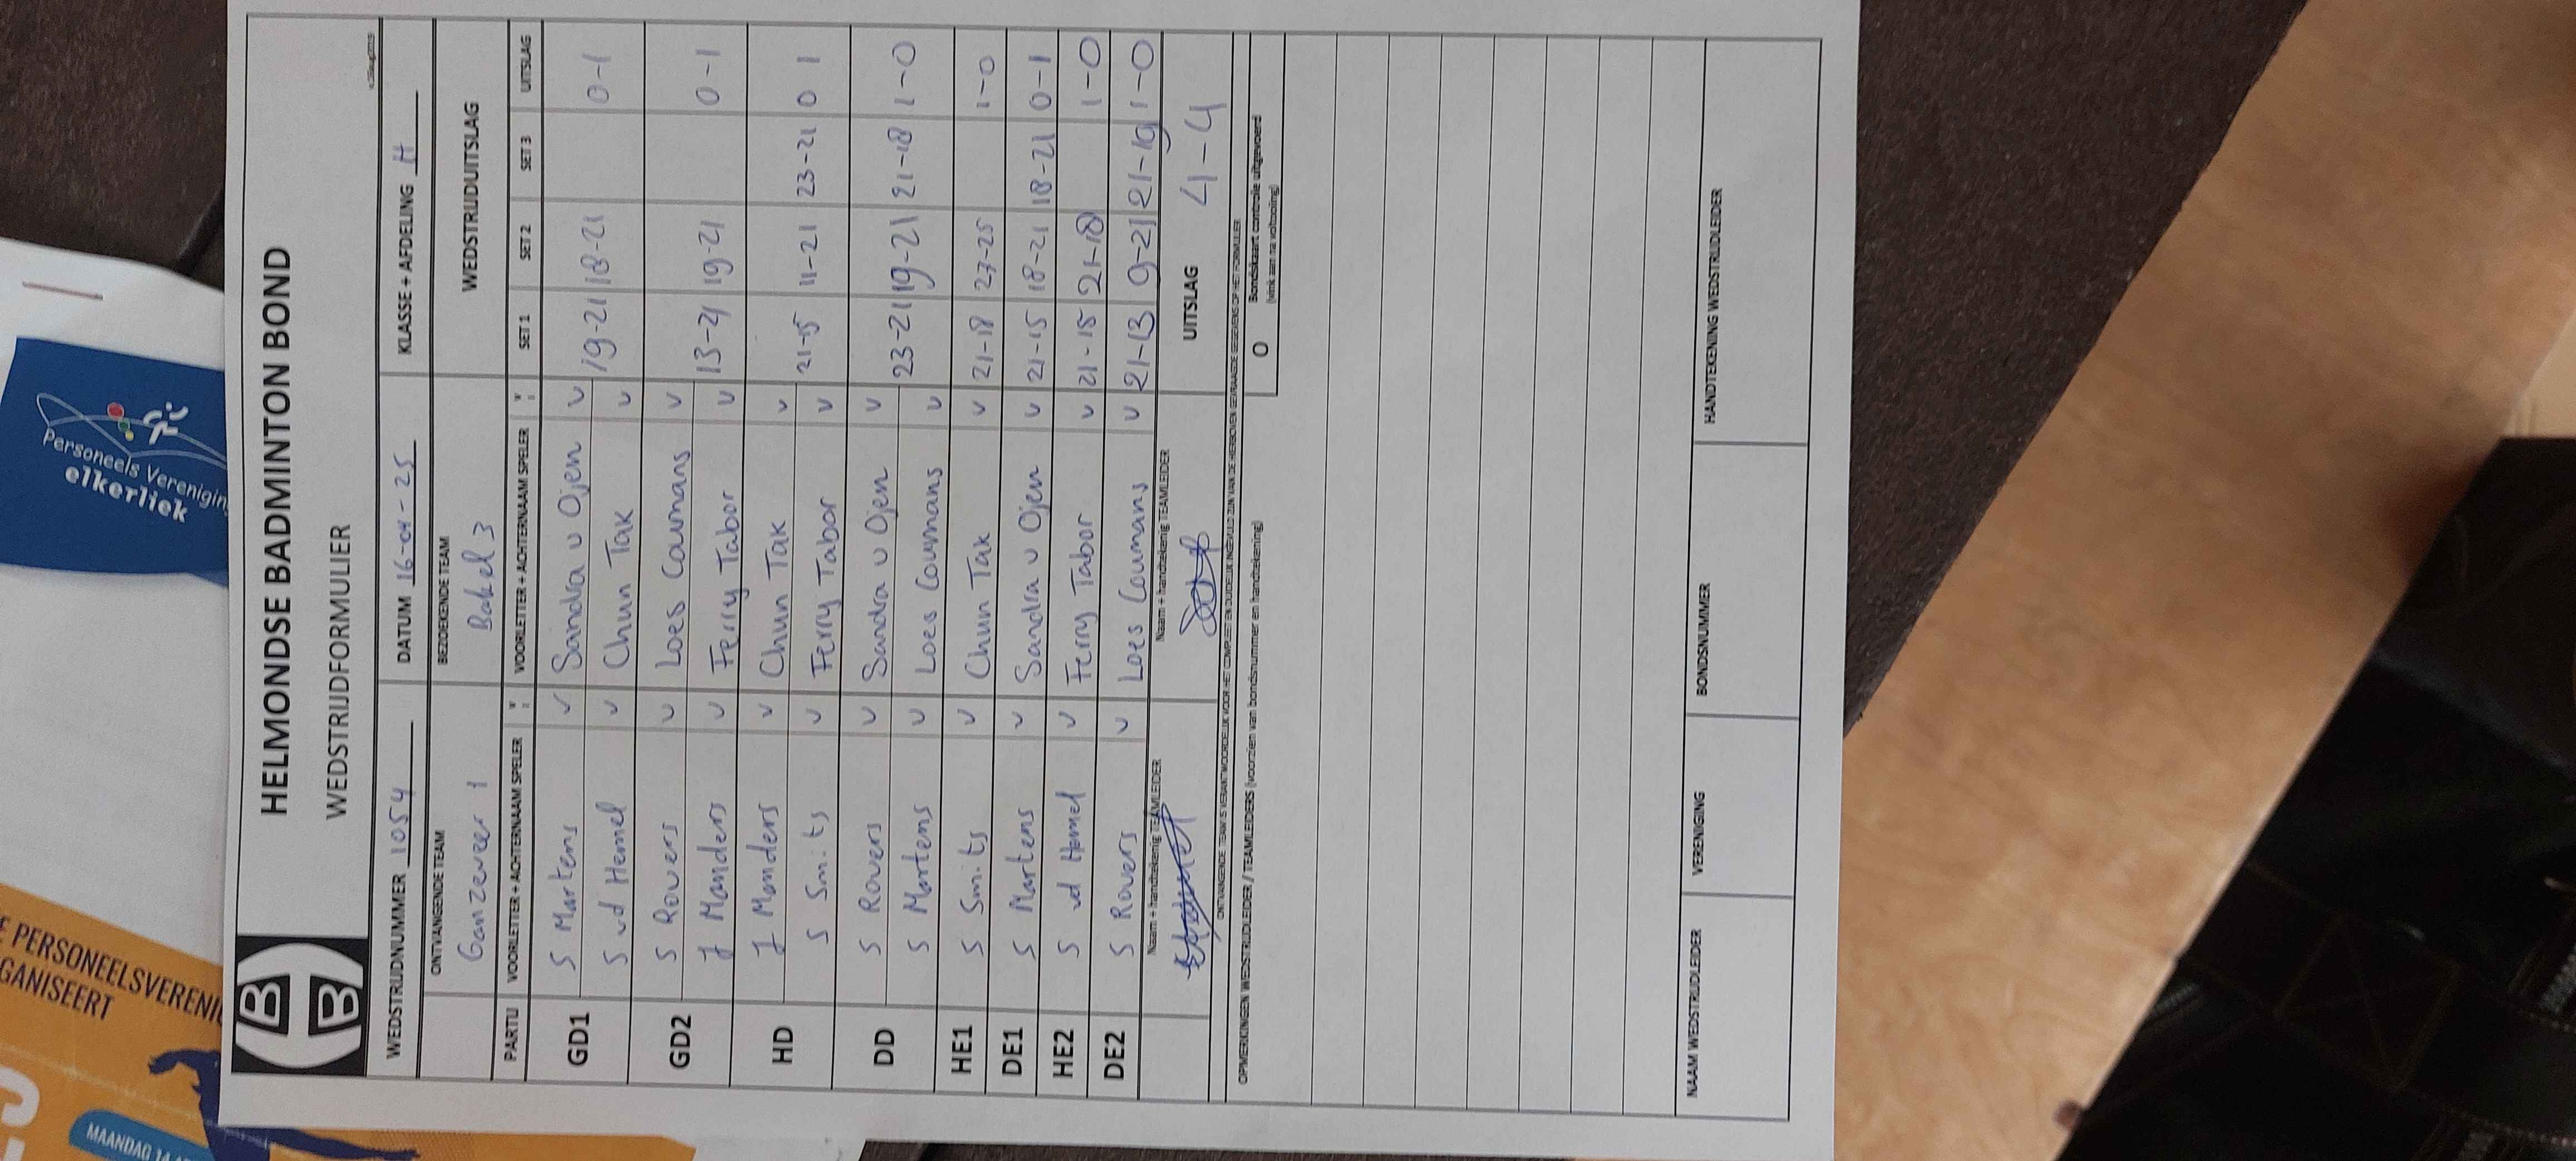 HELMONDSE BADMINTON BOND
WEDSTRIJDFORMULIER
WEDSTRIJDNUMMER 1054 DATUM 16-04-25 KLASSE + AFDELING H
ONTVANGENDE TEAM BEZOEKENDE TEAM WEDSTRIJDUITSLAG
Ganzeveer 1 Bakel 3
PARTIJ VOORLETTER + ACHTERNAAM SPELER VOORLETTER + ACHTERNAAM SPELER SET 1 SET 2 SET 3 UITSLAG
GD1 S Martens v Sandra v Ojen v 19-21 18-21 0-1
S vd Hemel v Chun Tak v
GD2 S Rovers v Loes Coumans v 13-21 19-21 0-1
J Manders v Ferry Tabor v
HD J Manders v Chun Tak v 21-15 11-21 23-21 0 1
S Smits v Ferry Tabor v
DD S Rovers v Sandra v Ojen v 23-21 19-21 21-18 1-0
S Martens v Loes Coumans v
HE1 S Smits v Chun Tak v 21-18 27-25 1-0
DE1 S Martens v Sandra v Ojen v 21-15 18-21 18-21 0-1
HE2 S vd Hemel v Ferry Tabor v 21-18 21-18 1-0
DE2 S Rovers v Loes Coumans v 21-13 9-21 21-19 1-0
Naam + handtekenig TEAMLEIDER Naam + handtekenig TEAMLEIDER UITSLAG 4-4
ONTVANGENDE TEAM IS VERANTWOORDELIJK VOOR HET COMPLEET EN DUIDELIJK INGEVULD ZIJN VAN DE HIERBOVEN GEVRAAGDE GEGEVENS OP HET FORMULIER
OPMERKINGEN WEDSTRIJDLEIDER / TEAMLEIDERS (voorzien van bondsnummer en handtekening) O Bondskaart controle uitgevoerd
(vink aan na voltooiing)
NAAM WEDSTRIJDLEIDER VERENIGING BONDSNUMMER HANDTEKENING WEDSTRIJDLEIDER
Personeels Vereniging
elkerliek
E PERSONEELSVERENIG
GANISEERT
MAANDAG 14